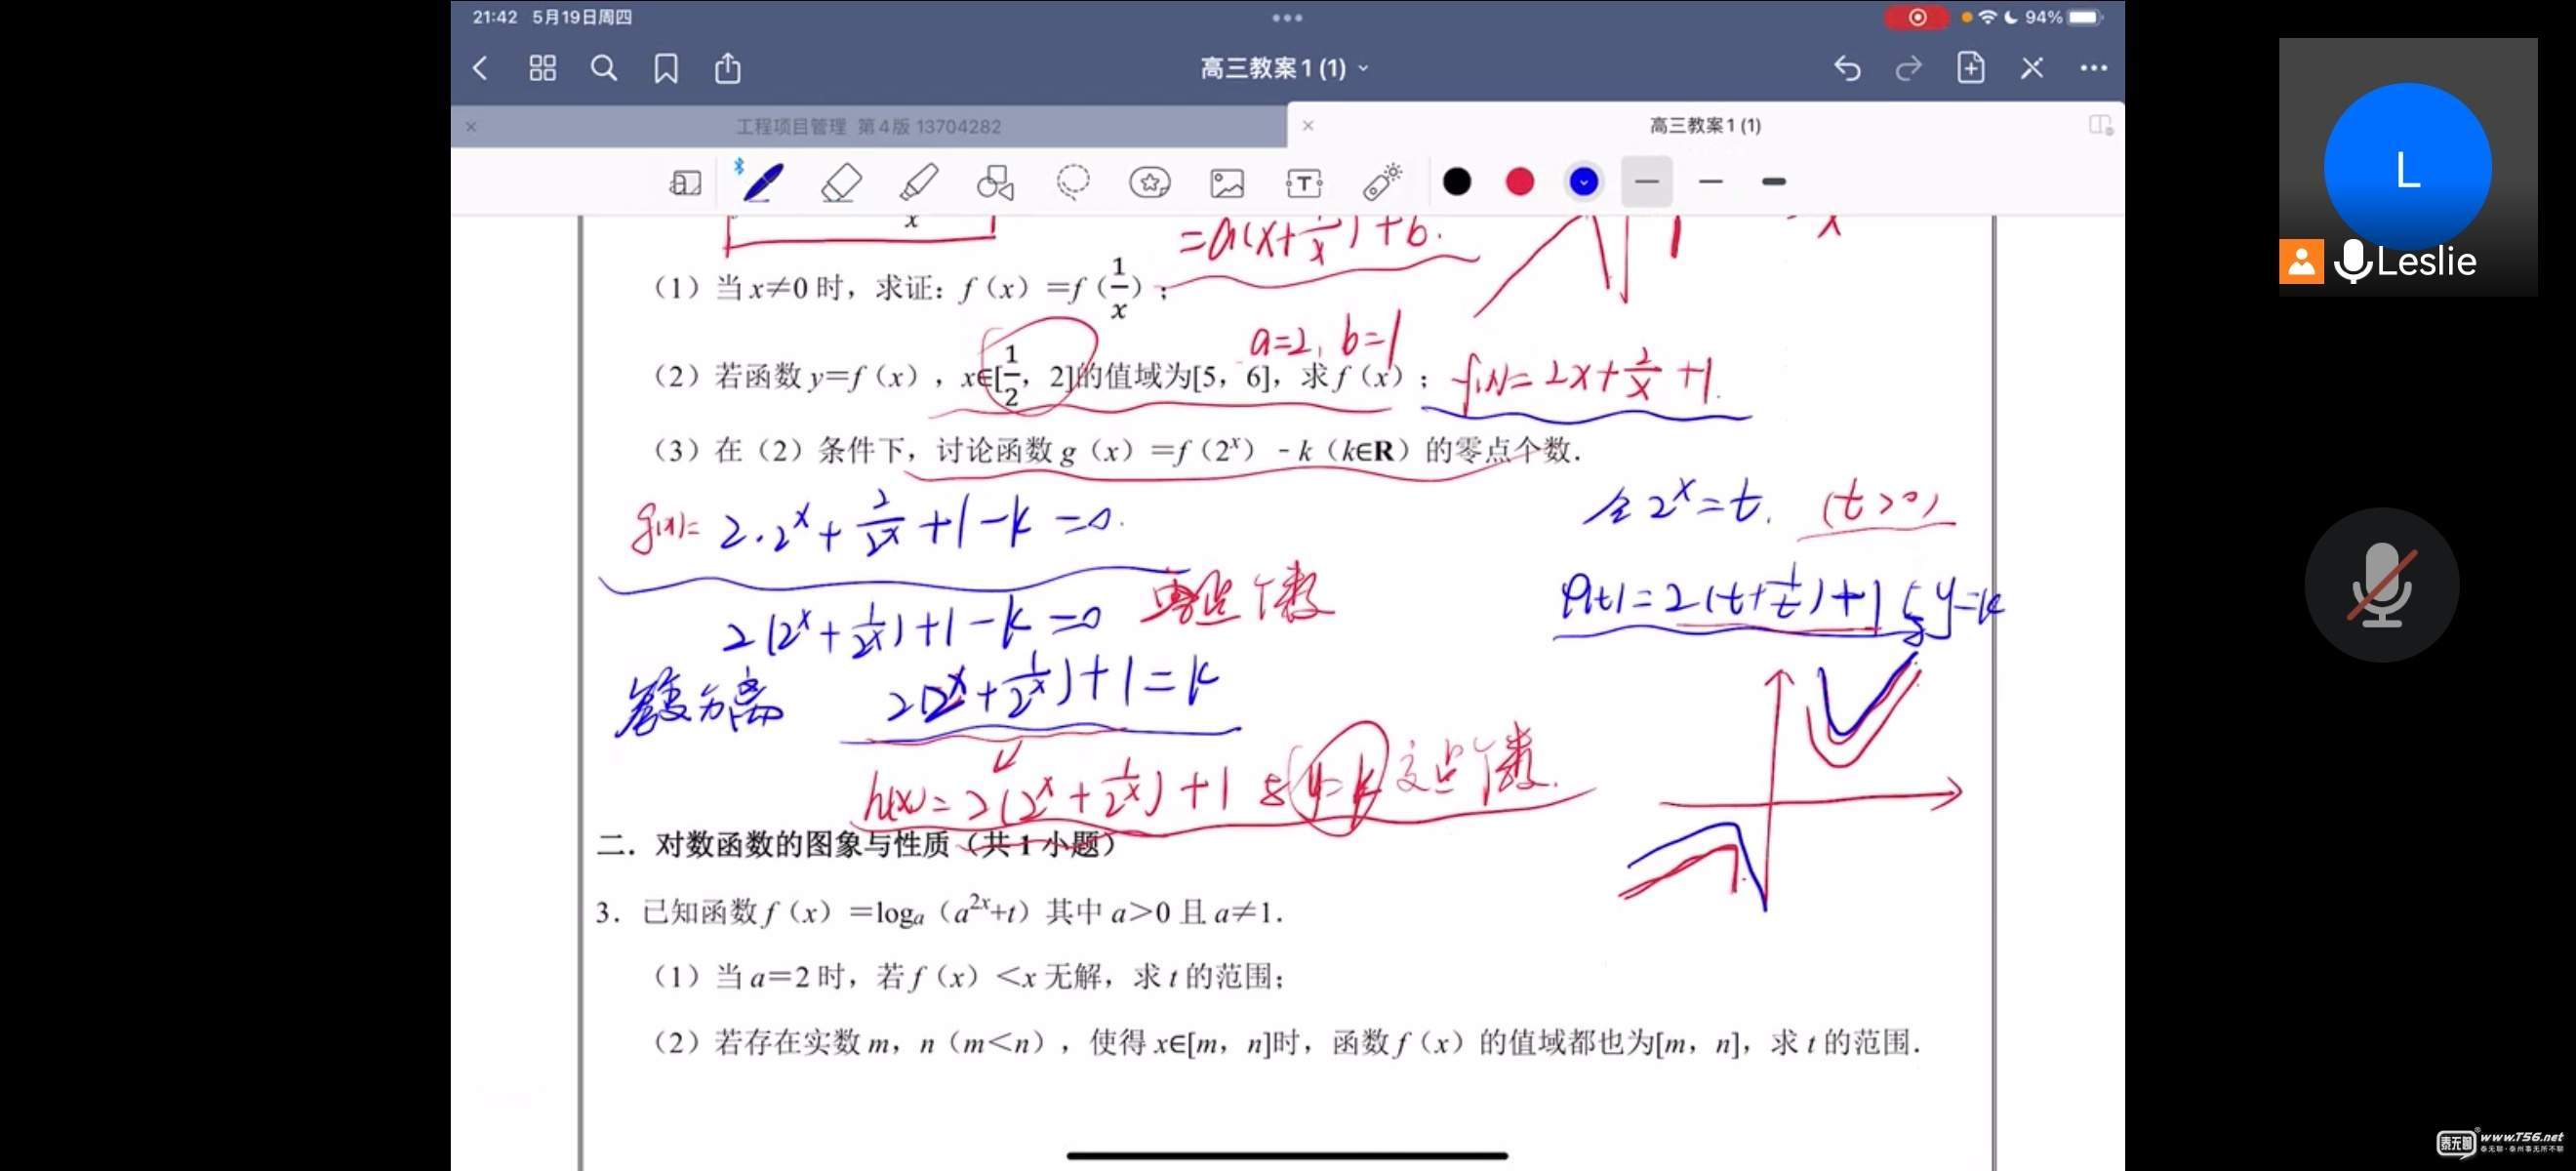 21:42 5月19日周四
94%
高三教案1 (1)
工程项目管理 第4版 13704282
高三教案1 (1)
T
x
=a(x+1/x)+b.
x
（1）当 x≠0 时，求证：f（x）=f（1/x）；
a=2, b=1
（2）若函数 y=f（x），x∈[1/2，2]的值域为[5，6]，求 f（x）； f(x)=2x+2/x+1.
（3）在（2）条件下，讨论函数 g（x）=f（2ˣ）﹣k（k∈R）的零点个数．
g(x)= 2·2ˣ+2/2ˣ+1-k=0.
令2ˣ=t. (t>0)
2(2ˣ+1/2ˣ)+1-k=0
个数
φ(t)=2(t+1/t)+1 与y=k
分离
2(2ˣ+1/2ˣ)+1=k
h(x)=2(2ˣ+1/2ˣ)+1 与y=k交点个数.
二．对数函数的图象与性质（共 1 小题）
3．已知函数 f（x）=logₐ（a²ˣ+t）其中 a>0 且 a≠1．
（1）当 a=2 时，若 f（x）<x 无解，求 t 的范围；
（2）若存在实数 m，n（m<n），使得 x∈[m，n]时，函数 f（x）的值域都也为[m，n]，求 t 的范围．
L
Leslie
泰无聊
www.T56.net